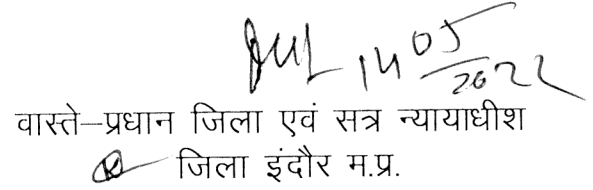 14 05/2022
वास्ते–प्रधान जिला एवं सत्र न्यायाधीश
जिला इंदौर म.प्र.